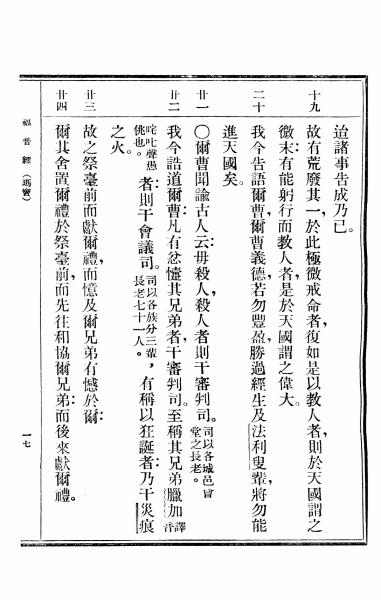 迨諸事告成乃已。
十九 故有荒廢其一於此極微戒命者，復如是以教人者，則於天國謂之
微末，有能躬行而教人者，是於天國謂之偉大。
二十 我今告語爾曹，爾曹義德，若勿豐盈，勝過經生及法利叟輩，將勿能
進天國矣。
廿一 〇爾曹聞諭古人云：毋殺人，殺人者則干審判司。司以各城邑曾堂之長老。
廿二 我今誥道爾曹：凡有忿懥其兄弟者，干審判司。至稱其兄弟臘加譯音
咤叱聲愚佻也。者：則干會議司。司以各族分三輩，長老七十一人。有稱以狂誕者：乃干災痕
之火。
廿三 故之祭臺前而獻爾禮，而憶及爾兄弟有憾於爾：
廿四 爾其舍置爾禮於祭臺前，而先往和協爾兄弟：而後來獻爾禮。
福音經（瑪竇）
一七